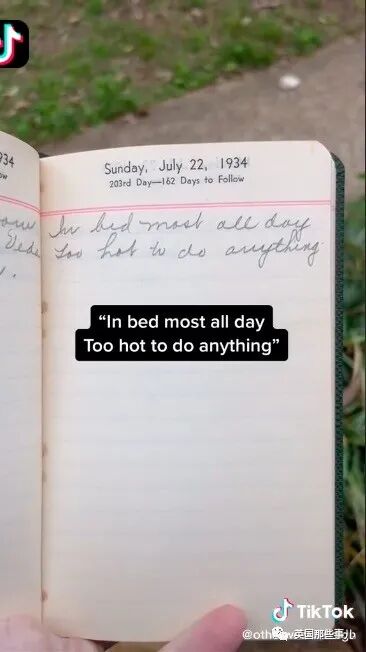 934
ow
Sunday, July 22, 1934
203rd Day—162 Days to Follow
In bed most all day
too hot to do anything
“In bed most all day
Too hot to do anything”
TikTok
英国那些事儿